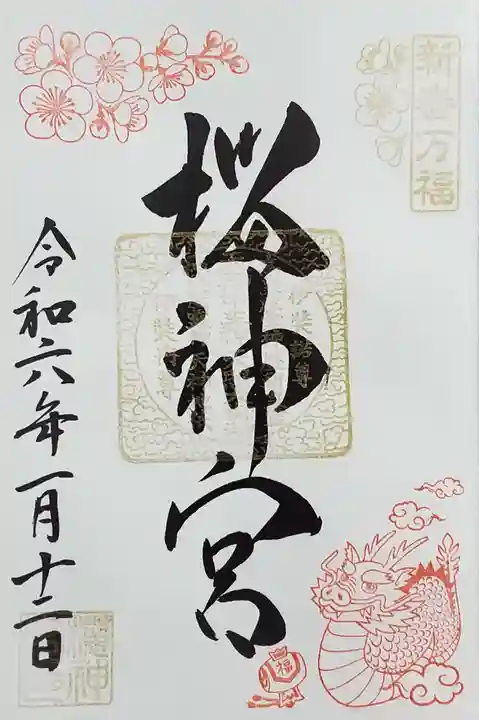 新春万福
桜神宮
令和六年一月十二日
福